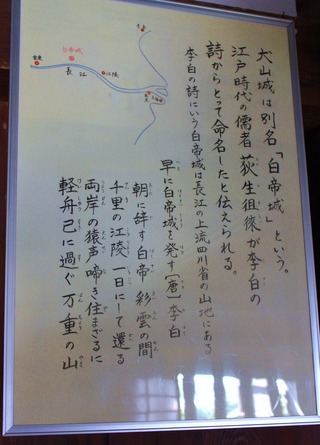 犬山城は別名「白帝城」という。
江戸時代の儒者 荻生徂徠が李白の
詩からとって命名したと伝えられる。
李白の詩にいう白帝城は長江の上流四川省の山地にある
早に白帝城を発す〔唐〕李白
朝に辞す白帝 彩雲の間
千里の江陵 一日にして還る
両岸の猿声啼き住まざるに
軽舟已に過ぐ万重の山
重慶
白帝城
長江
江陵